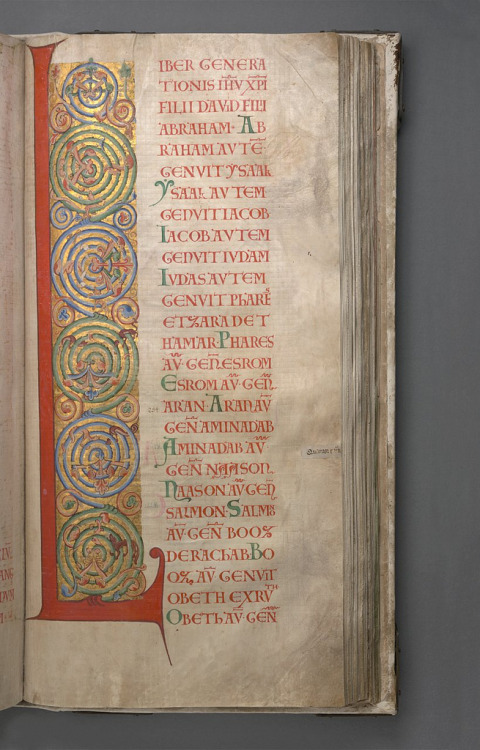 LIBER GENERA
TIONIS IHV XPI
FILII DAVID FILI
ABRAHAM· AB
RAHAM AVTĒ
GENVIT YSAAK
YSAAK AVTEM
GENVIT IACOB
IACOB AVTEM
GENVIT IVDAM
IVDAS AVTEM
GENVIT PHARĒ
ET ZARA DE T
HAMAR· PHARES
AV̄ GEN̄ ESROM
ESROM AV̄ GEN̄
ARAN· ARAN AV̄
GEN̄ AMINADAB
AMINADAB AV̄
GEN̄ NAASON·
NAASON AV̄ GEN̄
SALMON· SALMŌ
AV̄ GEN̄ BOOZ
DE RACHAB BO
OZ, AV̄ GENVIT
OBETH EX RVTH
OBETH AV̄ GEN̄